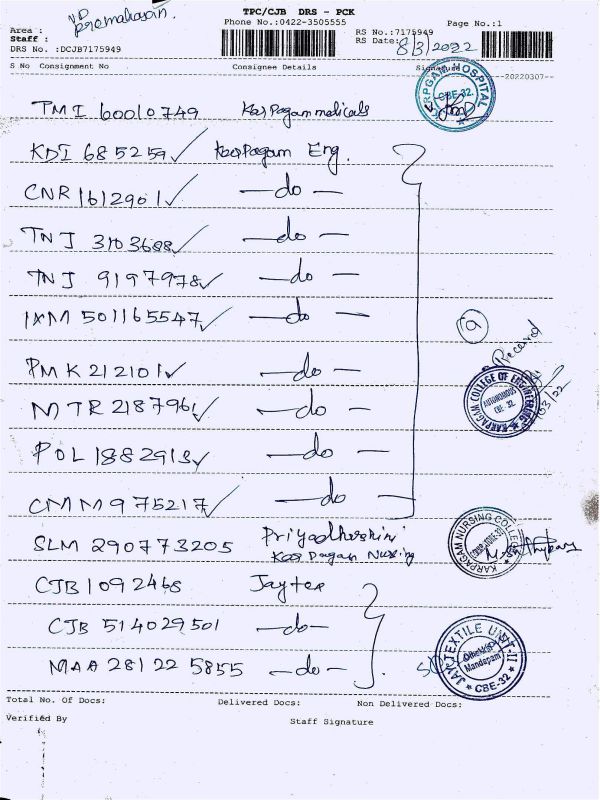 TPC/CJB DRS - PCK
Phone No.:0422-3505555
Page No.:1
Area :
Staff :
DRS No. :DCJB7175949
RS No.:7175949
RS Date: 8/3/2022
S No Consignment No Consignee Details Signature
20220307
TMI 60010749 Karpagam medicals
KDI 685259 ✓ Karpagam Eng.
CNR 1612901 ✓ —do—
TNJ 3103688 ✓ —do—
TNJ 9197978 ✓ —do—
IXM 501165547 ✓ —do—
PMK 212101 ✓ —do—
MTR 2187961 ✓ —do—
POL 1882913 ✓ —do—
CMM 975217 ✓ —do—
SLM 290773205 Priyadharshini
Karpagam Nursing
CJB 1092468 Jaytex
CJB 514029501 —do—
MAA 281225855 —do—
KARPAGAM HOSPITAL
CBE-32
9
Received
KARPAGAM COLLEGE OF ENGINEERING
AUTONOMOUS
CBE 32.
KARPAGAM NURSING COLLEGE
JAY TEXTILE UNIT-II
Mandapam
CBE-32
Total No. Of Docs: Delivered Docs: Non Delivered Docs:
Verified By Staff Signature